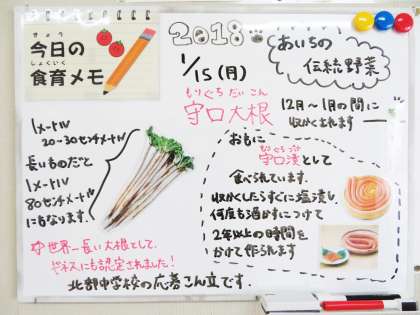 きょう
今日の
しょくいく
食育メモ
2018
1/15(月)
あいちの
伝統野菜
もりぐちだいこん
守口大根
12月~1月の間に
収かくされます
1メートル
20-30センチメートル
長いものだと
1メートル
80センチメートル
にもなります。
おもに
もりぐちづけ
守口漬として
食べられています。
収かくしたらすぐに塩漬し
何度も酒かすにつけて
2年以上の時間を
かけて作られます
世界一長い大根として、
ギネスにも認定されました!
北部中学校の応募こん立です。